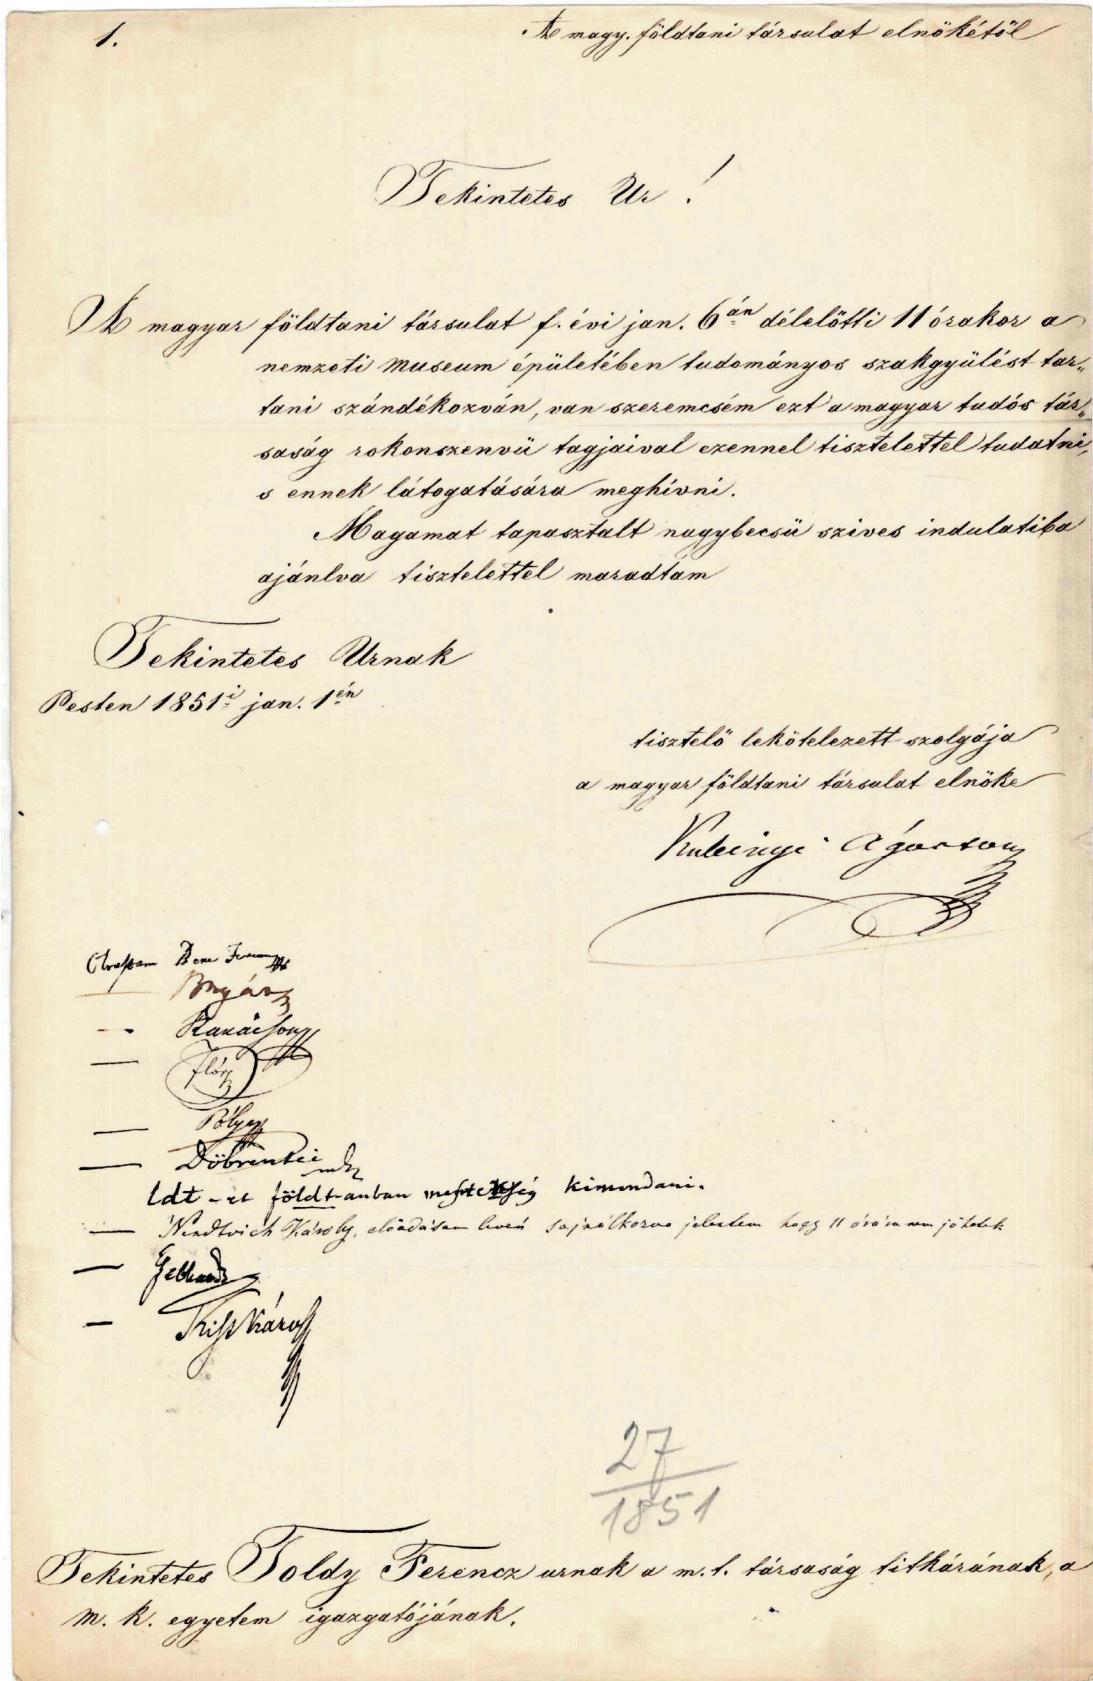 1.
A magy. földtani társulat elnökétől
Tekintetes Ur!
A magyar földtani társulat f. évi jan. 6án délelőtti 11 órakor a
nemzeti Museum épületében tudományos szakgyülést tar-
tani szándékozván, van szeremcsém ezt a magyar tudós tár-
saság rokonszenvü tagjaival ezennel tisztelettel tudatni,
s ennek látogatására meghívni.
Magamat tapasztalt nagybecsü szives indulatiba
ajánlva tisztelettel maradtam
Tekintetes Urnak
Pesten 1851i jan. 1én
tisztelő lekötelezett szolgája
a magyar földtani társulat elnöke
Kubinyi Ágoston
Olvastam Bene
Karácsony
Flór
Döbrentei
földt-anban kimondani.
Nendtvich Károly, előadásom levén sajnálkozva jelentem hogy 11 órára nem jöhetek
Gebhardt
Kiss Károly
27
1851
Tekintetes Toldy Ferencz urnak a m. t. társaság titkárának, a
m. k. egyetem igazgatójának.